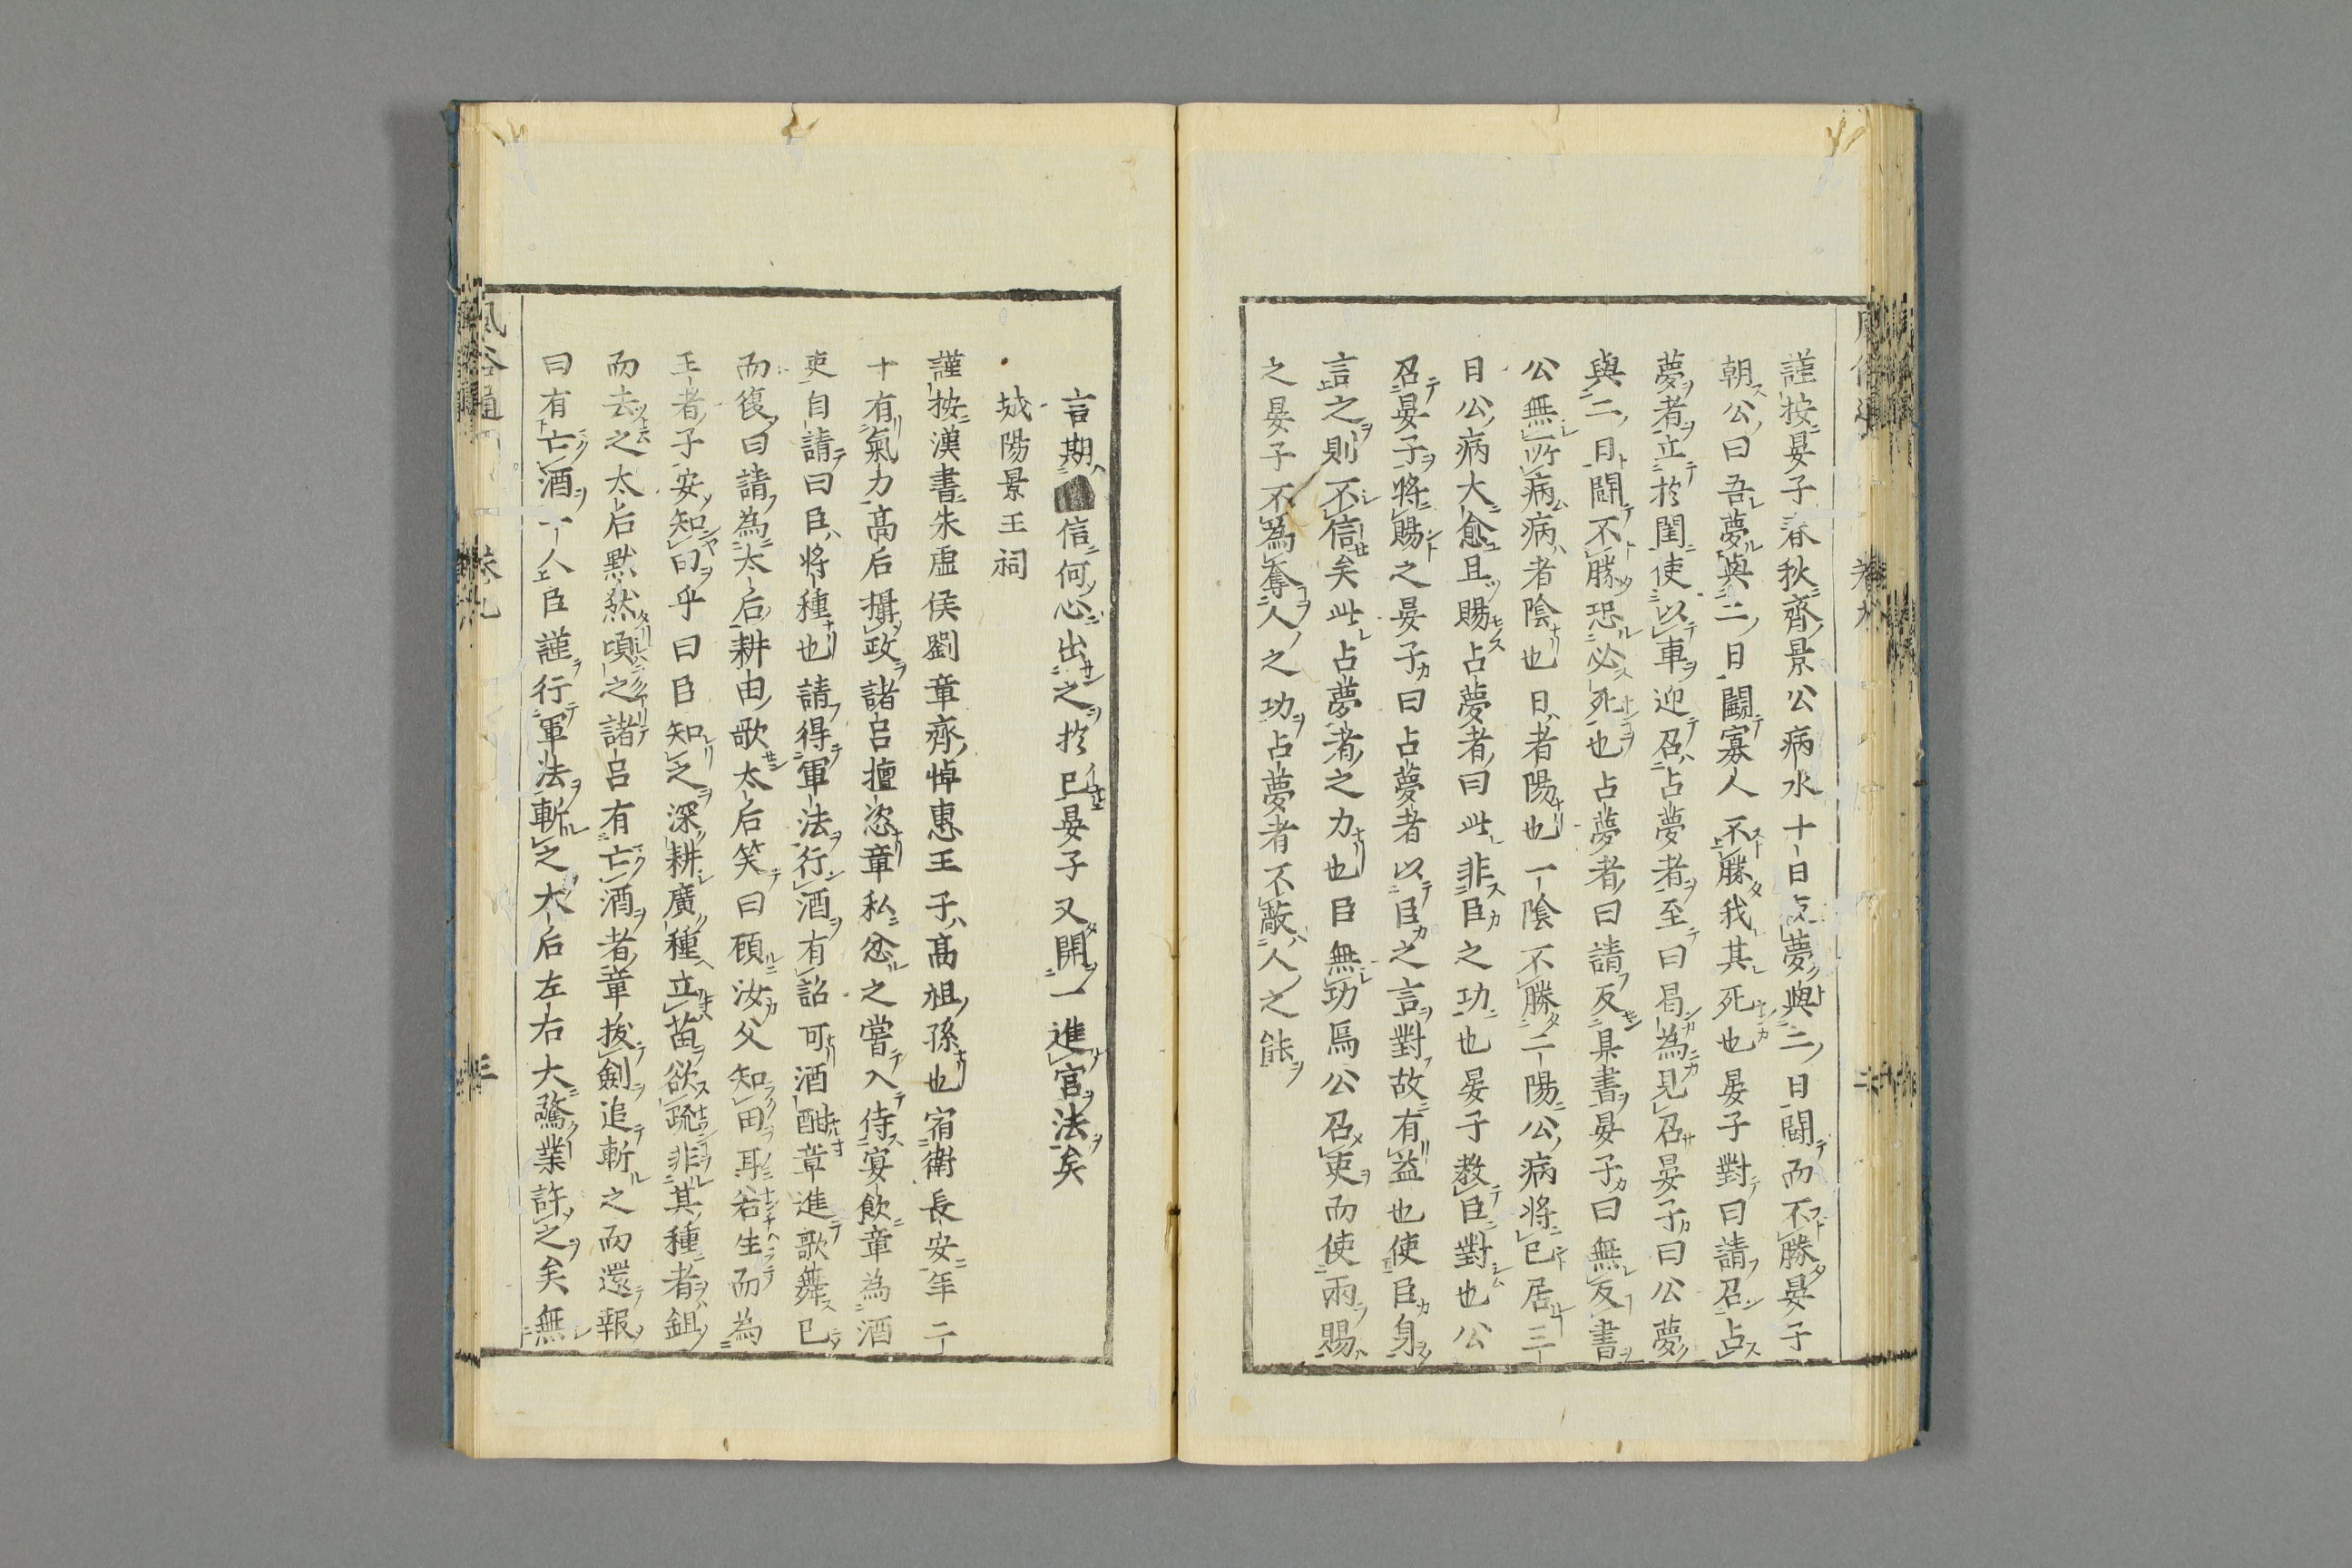 謹按晏子春秋齊景公病水十日夜夢與二日鬪而不勝晏子
朝公曰吾夢與二日鬪寡人不勝我其死也晏子對曰請召占
夢者立於閨使以車迎召占夢者至曰曷為見召晏子曰公夢
與二日鬪不勝恐必死也占夢者曰請反具書晏子曰無反書
公無所病病者陰也日者陽也一陰不勝二陽公病將已居三
日公病大愈且賜占夢者曰此非臣之功也晏子教臣對也公
召晏子將賜之晏子曰占夢者以臣之言對故有益也使臣身
言之則不信矣此占夢者之力也臣無功焉公召吏而使兩賜
之晏子不為奪人之功占夢者不蔽人之能
言期信何心出之於已晏子又開一進官法矣
城陽景王祠
謹按漢書朱虛侯劉章齊悼惠王子高祖孫也宿衛長安年二
十有氣力高后攝政諸呂擅恣章私忿之嘗入侍宴飲章為酒
吏自請曰臣將種也請得軍法行酒有詔可酒酣章進歌舞已
而復曰請為太后耕田歌太后笑曰顧汝父知田耳若生而為
王者子安知田乎曰臣知之深耕廣種立苗欲疏非其種者鉏
而去之太后默然頃之諸呂有亡酒者章拔劍追斬之而還報
曰有亡酒一人臣謹行軍法斬之太后左右大驚業許之矣無
風俗通 卷九 三